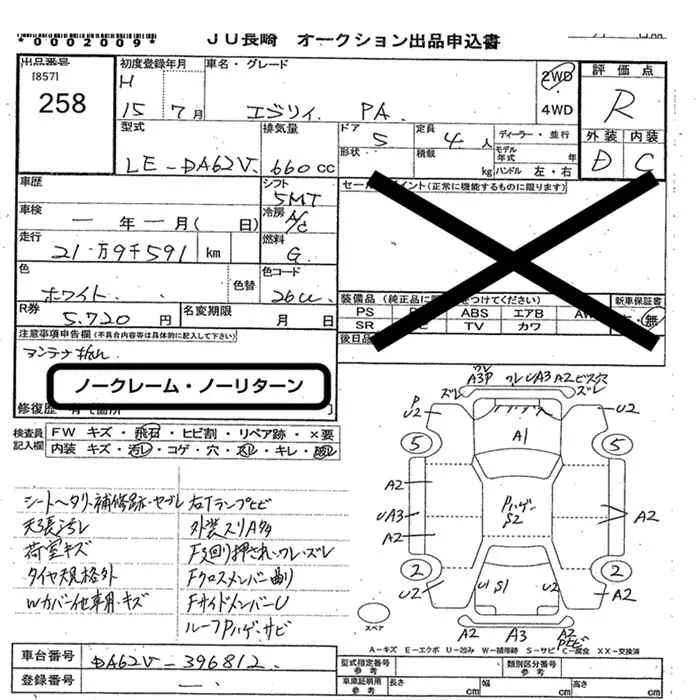 *0002009*
JU長崎 オークション出品申込書
出品番号
[857]
258
初度登録年月
H
15年7月
車名・グレード
エブリイ PA
2WD
4WD
評価点
R
外装 内装
D C
型式
LE-DA62V
排気量
660cc
ドア
5
定員
4人
ディーラー・並行
形状
積載
kg
モデル年式 年
ハンドル 左・右
車歴
シフト
5MT
車検
一年一月( 日)
冷房
A/C
走行
21万9千591 km
燃料
G
色
ホワイト
色替
色コード
26U
R券
5,720円
名変期限
月 日
セールスポイント(正常に機能するものに限ります)
装備品(純正品に つけてください)
PS ABS エアB AW
SR TV カワ
新車保証書
無
後日品
注意事項申告欄(不具合内容等は具体的に記入して下さい)
アンテナ折れ
ノークレーム・ノーリターン
修復歴
検査員記入欄
FW キズ・飛石・ヒビ割・リペア跡・×要
内装 キズ・汚レ・コゲ・穴・スレ・キレ・
シートヘタリ・補修跡・セブレ
天張汚レ
荷室キズ
タイヤ規格外
Wカバー他車用・キズ
右Tランプヒビ
外装スリA多
F廻り押され・ワレ・ズレ
Fクロスメンバー曲り
FサイドメンバーU
ルーフPハゲ・サビ
ワレ
A3P ワレ UA3 A2 ビス穴
ズレ ズレ
P
U2 U2
5 5
A1
A2
UA3
A2
Pハゲ
S2
A2
2 2
U2 U1 S1 U2 A2
A2 A3 A2
Pヒビ
スペア
A-キズ E-エクボ U-凹み W-補修跡 S-サビ C-腐食 XX-交換済
車台番号
DA62V-396812
登録番号
一
型式指定番号
参考
類別区分番号
参考
車庫証明用
参考
長さ cm 幅 cm 高さ cm